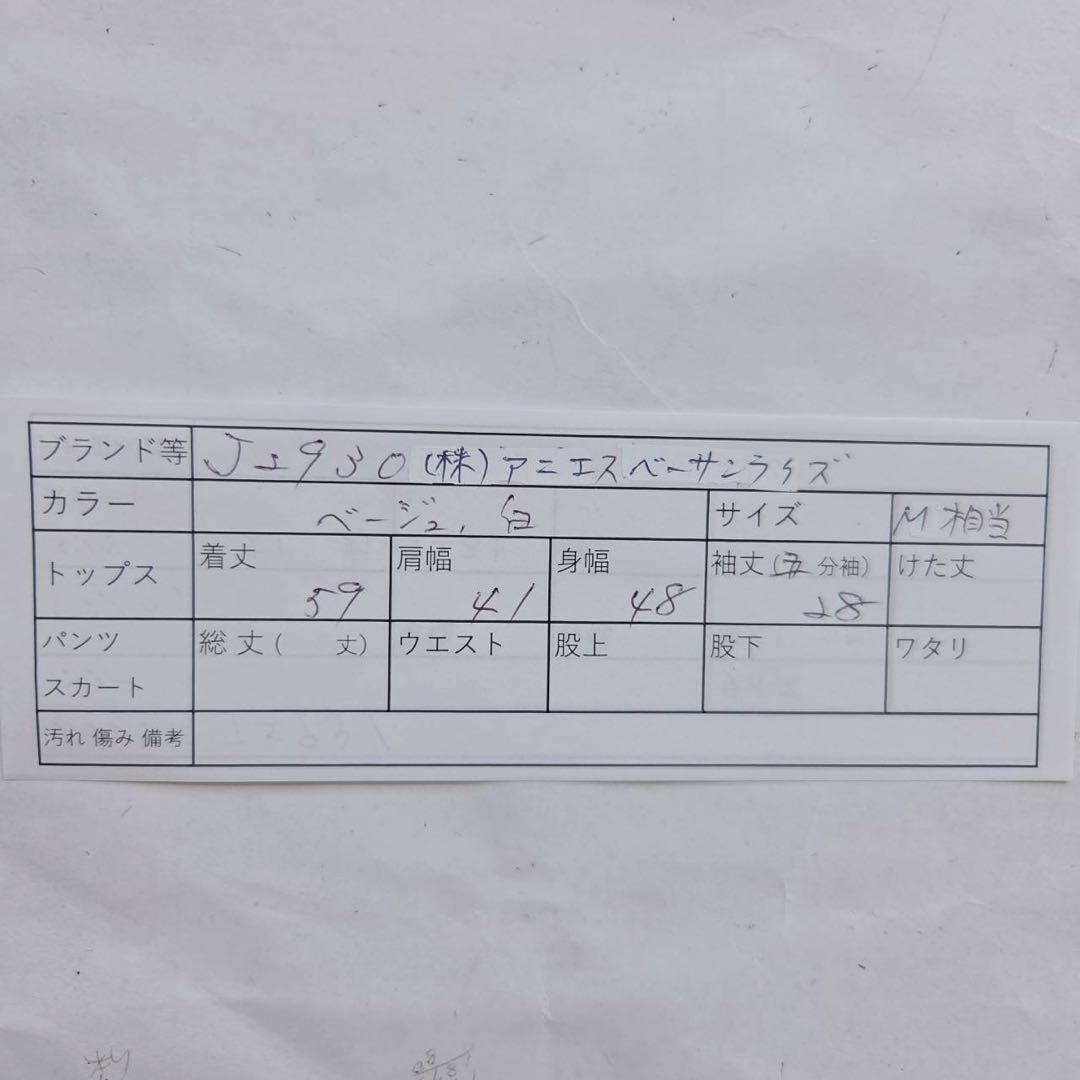 ブランド等 J2930 (株)アニエスベーサンライズ
カラー ベージュ、白 サイズ M相当
トップス 着丈 59 肩幅 41 身幅 48 袖丈(五分袖) 28 けた丈
パンツ スカート 総丈( 丈) ウエスト 股上 股下 ワタリ
汚れ 傷み 備考